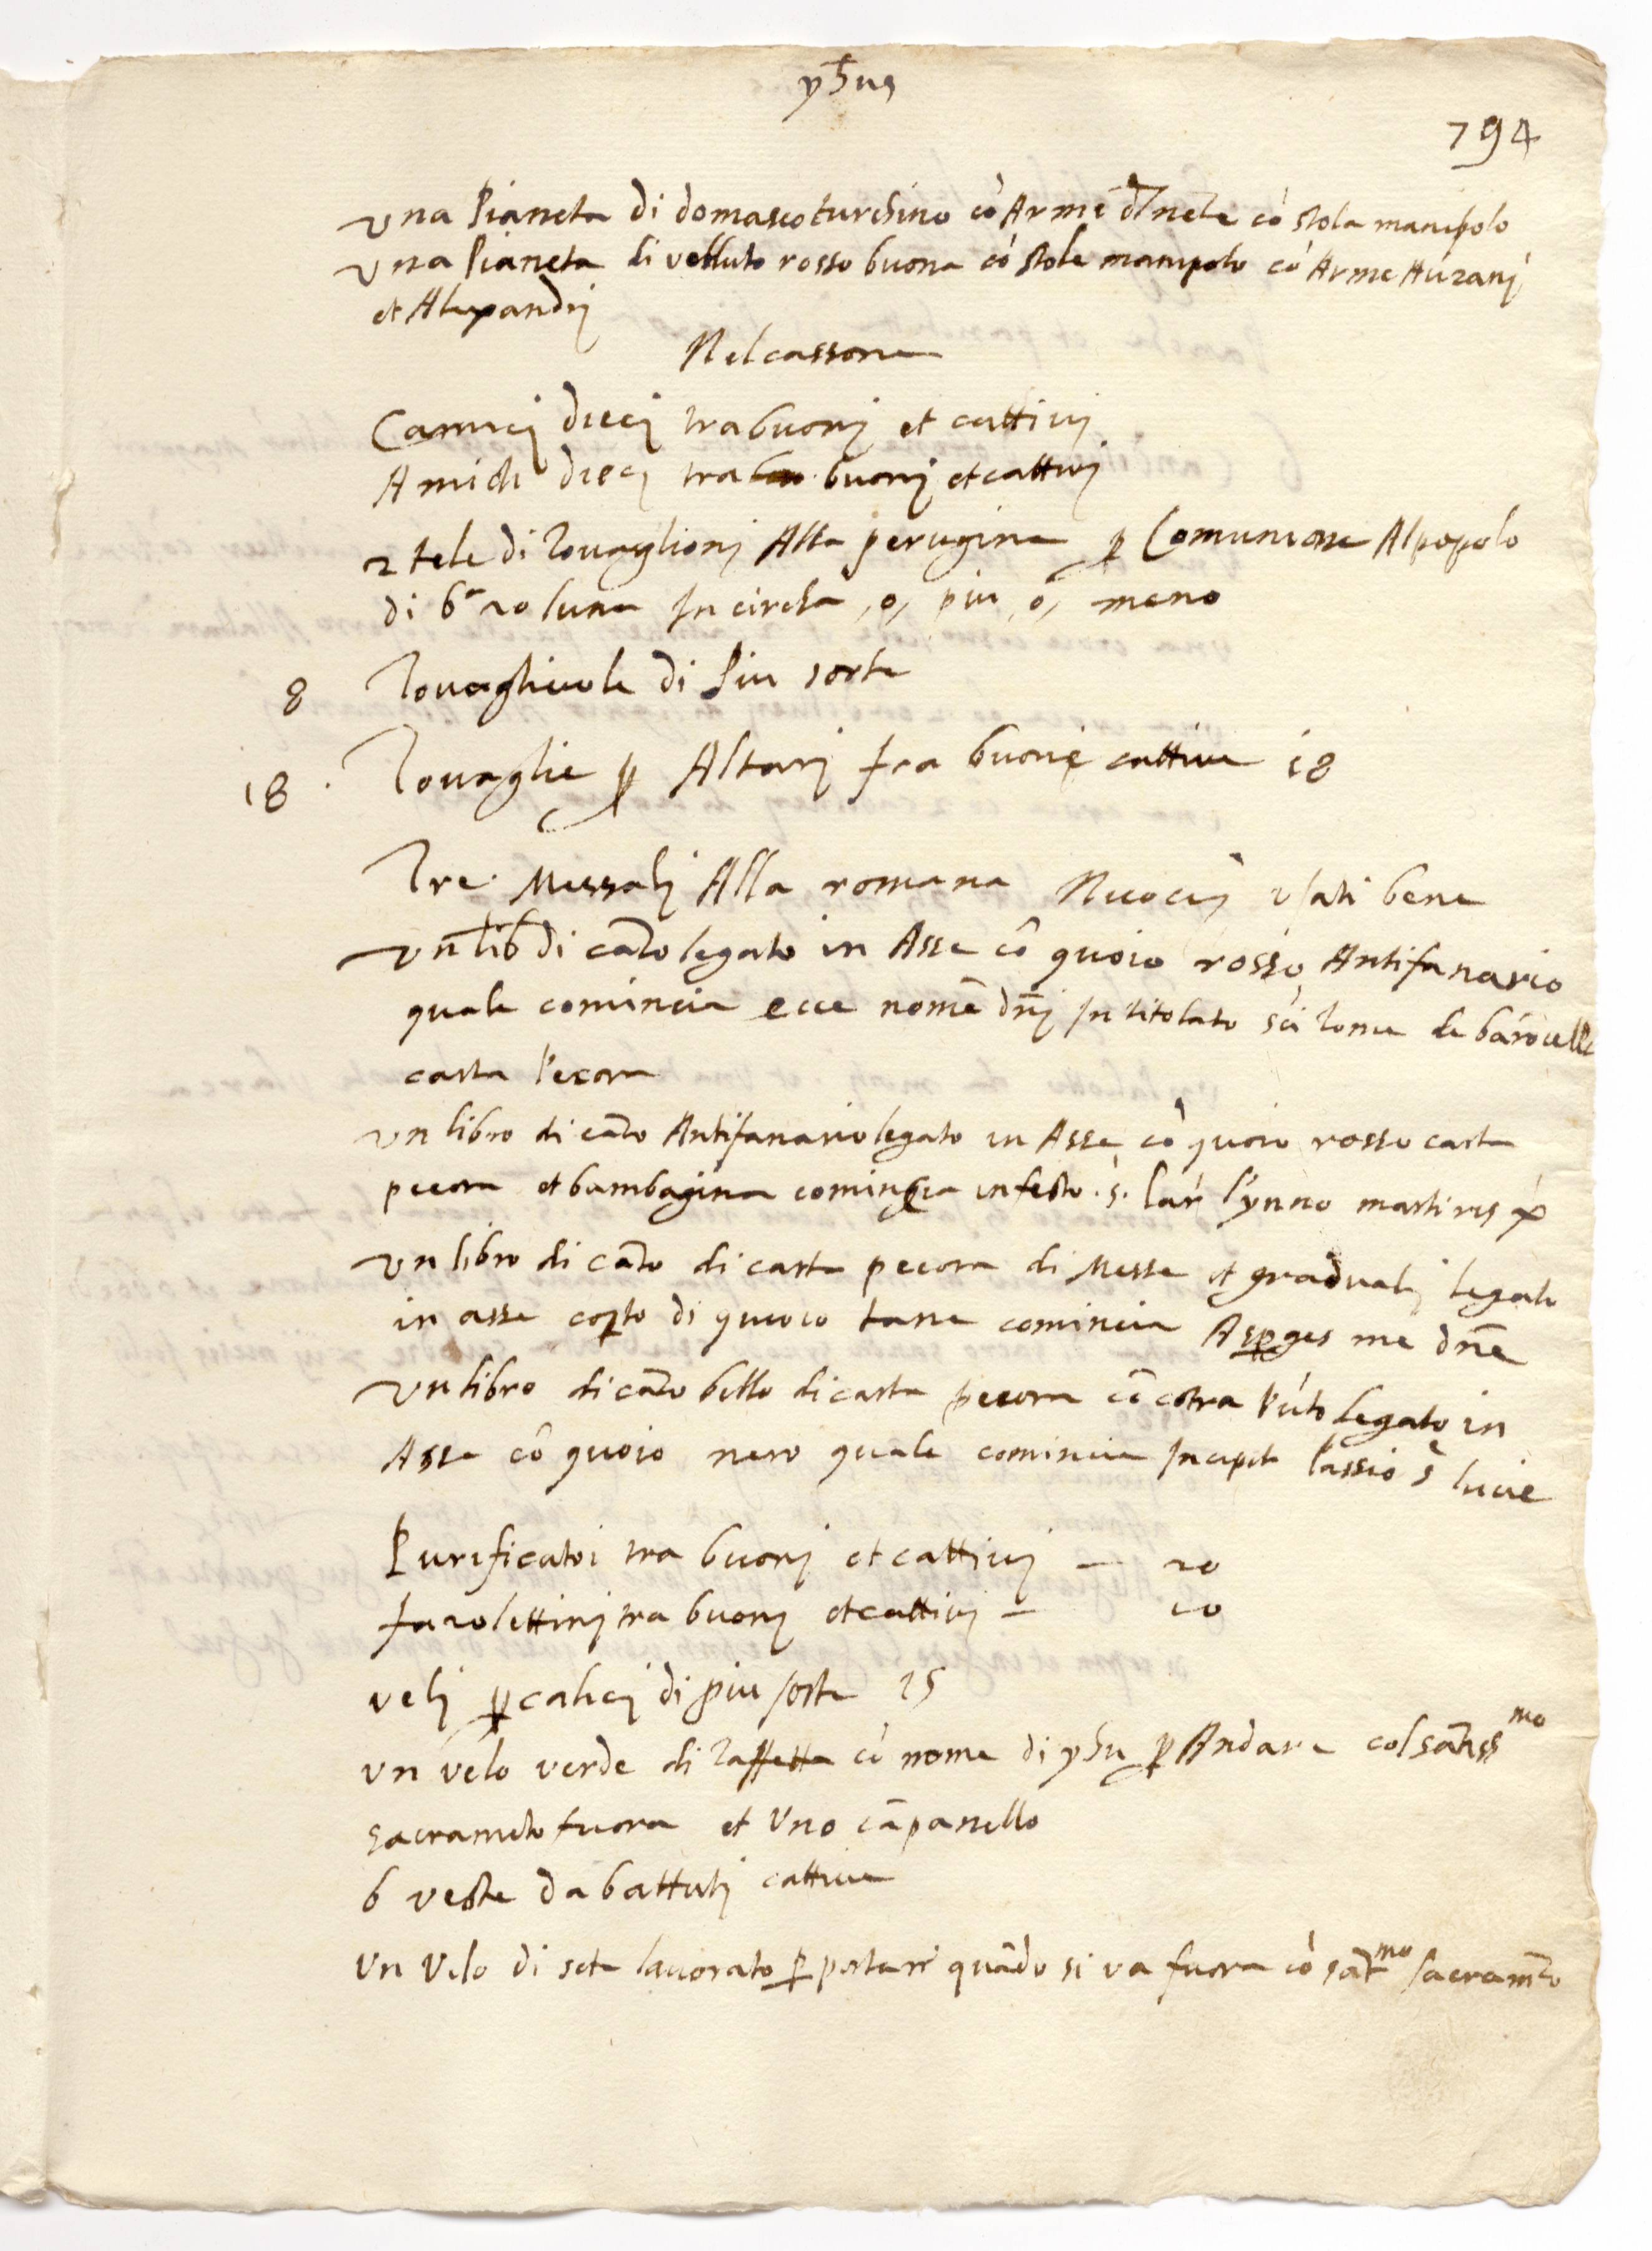 yhus
794
una Pianeta di domasco turchino cō Arme dl nete cō stola manipolo
una Pianeta di velluto rosso buona cō stole manipolo cō Arme
et Alexandrj
Nel cassone
Camicj diecj tra buonj et cattiuj
Amicti diecj tra buonj et cattiuj
2 tele di Touaglionj Alla perugina p Comunione Al popolo
di br 20 luna In circha ,o, piu ,o, meno
8 Touagliuole di Piu sorte
18 Touaglie p Altarj fra buonj e cattiue 18
Tre Messalj Alla romana usati bene
un lib di cāto legato in Asse cō quoio rosso Antifanario
quale comincia ecce nomē dn̄j Intitolato
carta Pecora
un libro di cāto Antifanario legato in Asse cō quoio rosso carta
pecora et bambagina comincia in festo .s. martiris
un libro di cāto di carta pecora di Messe et gradualj legato
in asse copto di quoio tane comincia Aspges me dn̄e
un libro di cāto bello di carta pecora cō cōtra Pūto legato in
Asse cō quoio nero quale comincia Incipit Passio s lucie
Purificatoi tra buonj et cattiuj — 20
fazolettinj tra buonj et cattiuj — 10
velj p calicj di piu sorte 25
un velo verde di Taffetta cō nome di yhu p Andare col sātiss mo
sacramēto fuora et Uno cāpanello
6 veste da battutj cattiue
Un Velo di seta lauorato p portare quādo si va fuora cō sāt mo sacramēto